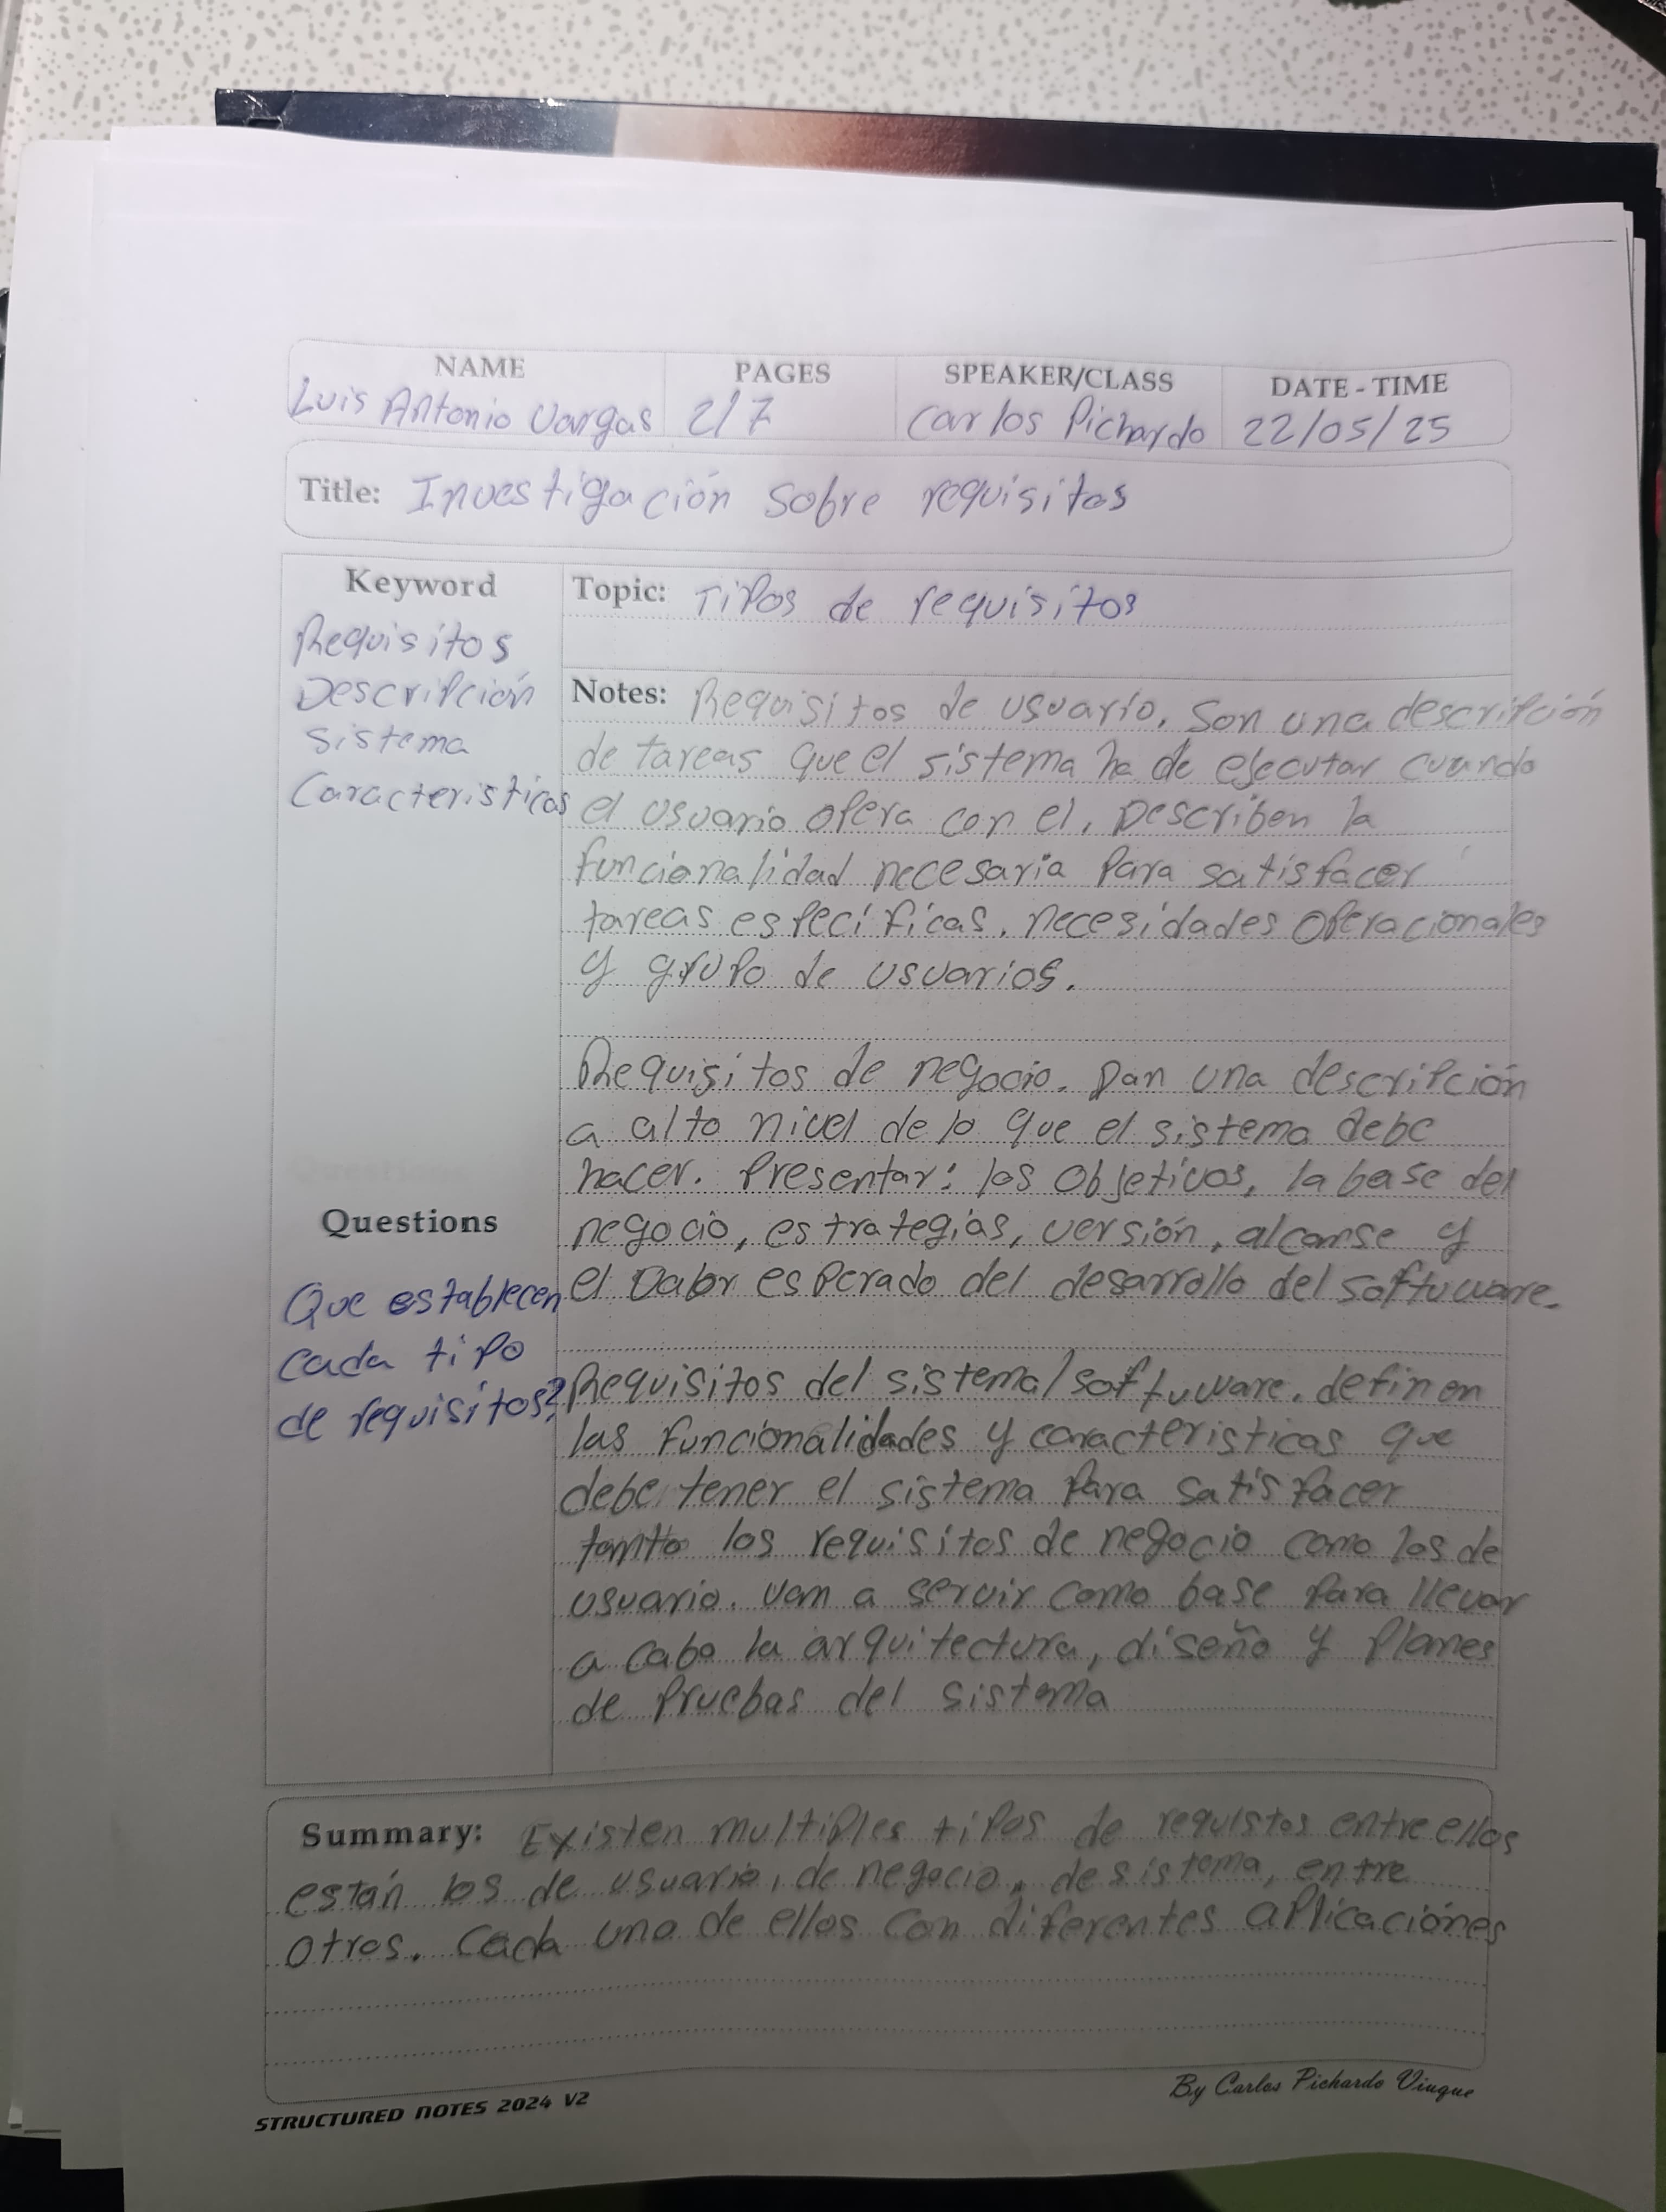 NAME PAGES SPEAKER/CLASS DATE - TIME
Luis Antonio Vargas 2/7 Carlos Pichardo 22/05/25
Title: Investigación sobre requisitos
Keyword
Requisitos
Descripción
Sistema
Caracteristicas
Questions
Que establecen
cada tipo
de requisitos?
Topic: Tipos de requisitos
Notes: Requisitos de usuario. Son una descripción
de tareas que el sistema ha de ejecutar cuando
el usuario opera con el. Describen la
funcionalidad necesaria para satisfacer
tareas específicas, necesidades operacionales
y grupo de usuarios.
Requisitos de negocio. Dan una descripción
a alto nivel de lo que el sistema debe
hacer. Presentar: los objetivos, la base del
negocio, estrategias, versión, alcanse y
el valor esperado del desarrollo del software.
Requisitos del sistema/software. definen
las funcionalidades y caracteristicas que
debe tener el sistema para satisfacer
tanto los requisitos de negocio como los de
usuario. Van a servir como base para llevar
a cabo la arquitectura, diseño y planes
de pruebas del sistema
Summary: Existen multiples tipos de requistos entre ellos
están los de usuario, de negocio, de sistema, entre
otros. Cada uno de ellos con diferentes aplicaciónes
STRUCTURED NOTES 2024 V2 By Carlos Pichardo Viuque